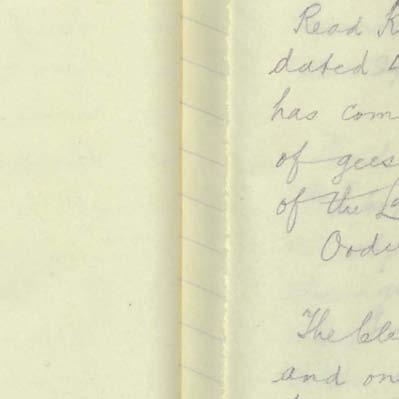 Read
dated
has com
of gees
of the La
Orde
The cle
and on